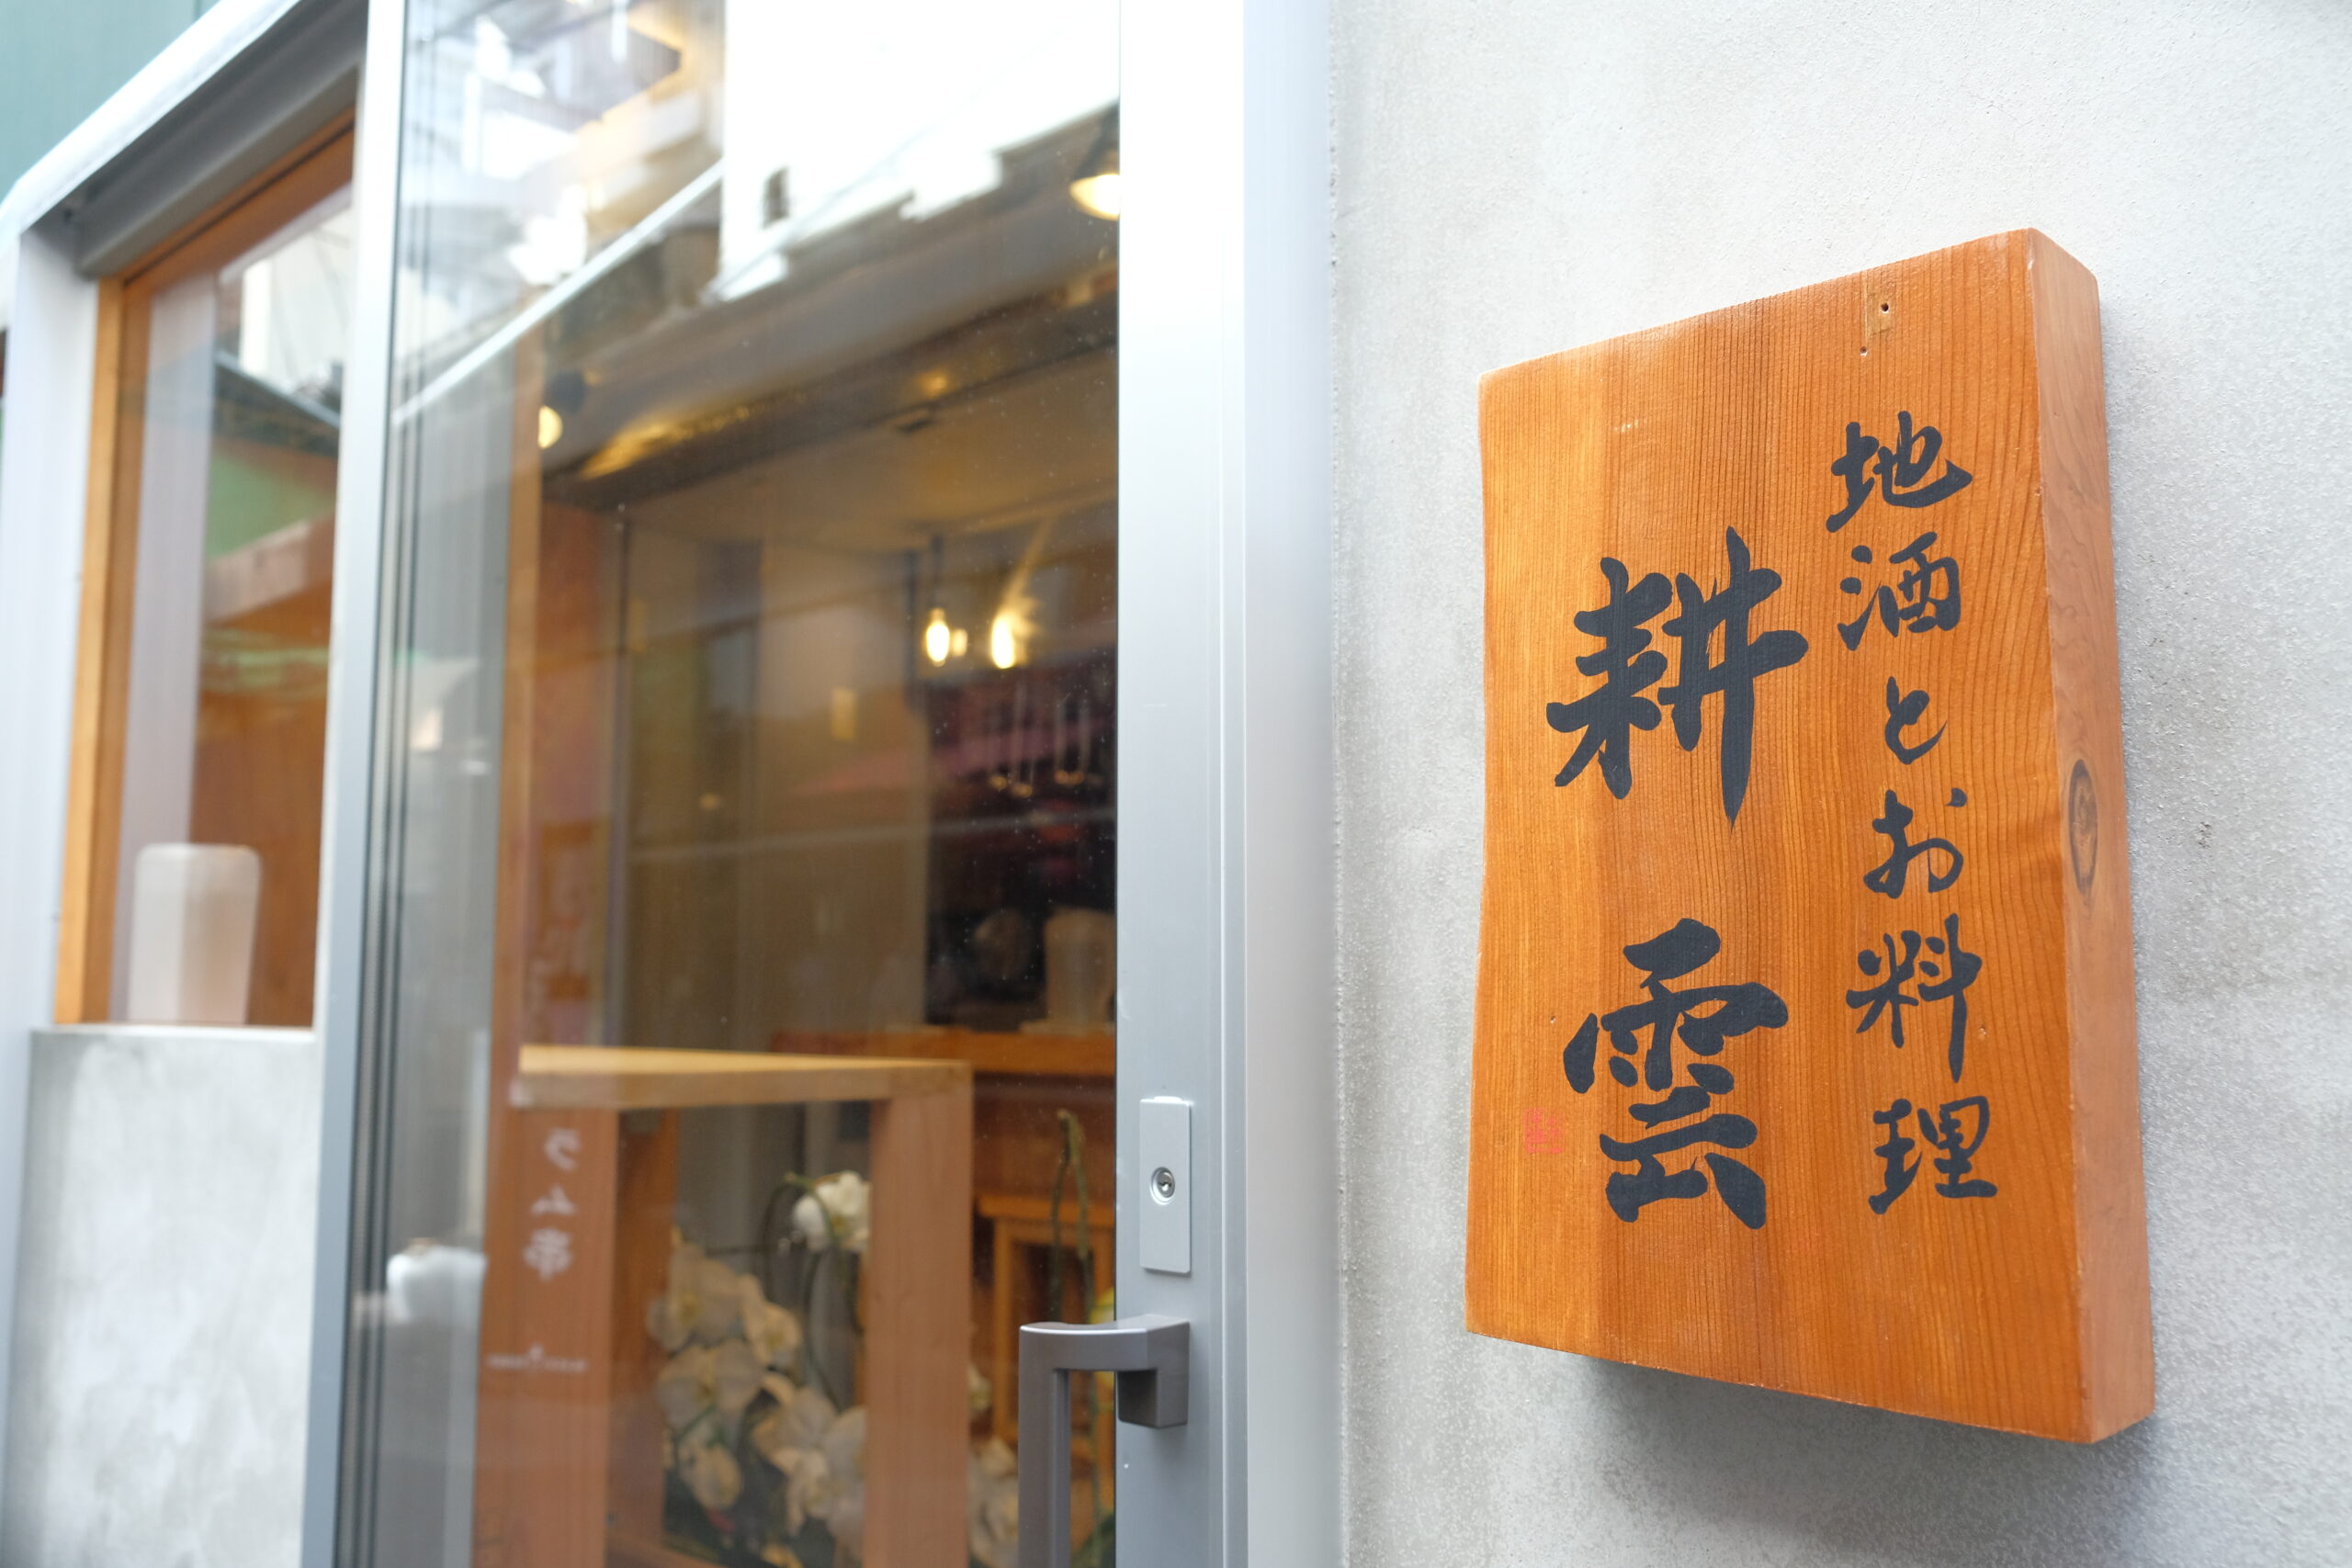 地酒とお料理
耕雲